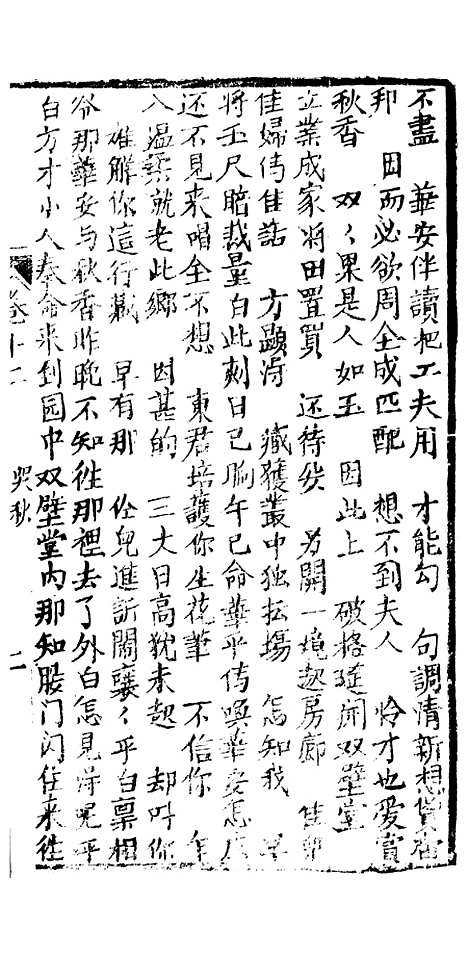 不盡 華安伴讀把工夫用 才能勾 句調清新想貨皆
邦 因而必欲周全成匹配 想不到夫人 怜才也愛賞
秋香 双〻果是人如玉 因此上 破格迁開双壁堂
立業成家将田置買 还待矣 另開一境起房廊 佳郎
佳婦侍佳話 方顯淂 臧獲叢中独抎場 怎知我 早
将玉尺暗裁量白此刻日已晌午已命華平傳喚華安怎么
还不見来唱全不想 東君培護你生花筆 不信你 年
入温柔就老此鄉 因甚的 三大日高犹未起 却叫你
难解你這行藏 早有那 伶兒進訴閙襄〻平白禀相
爷那華安与秋香昨晚不知往那裡去了外白怎見淂呢平
白方才小人奉命来到园中双壁堂内那知股门闪住来往
卷十二 哭秋 二